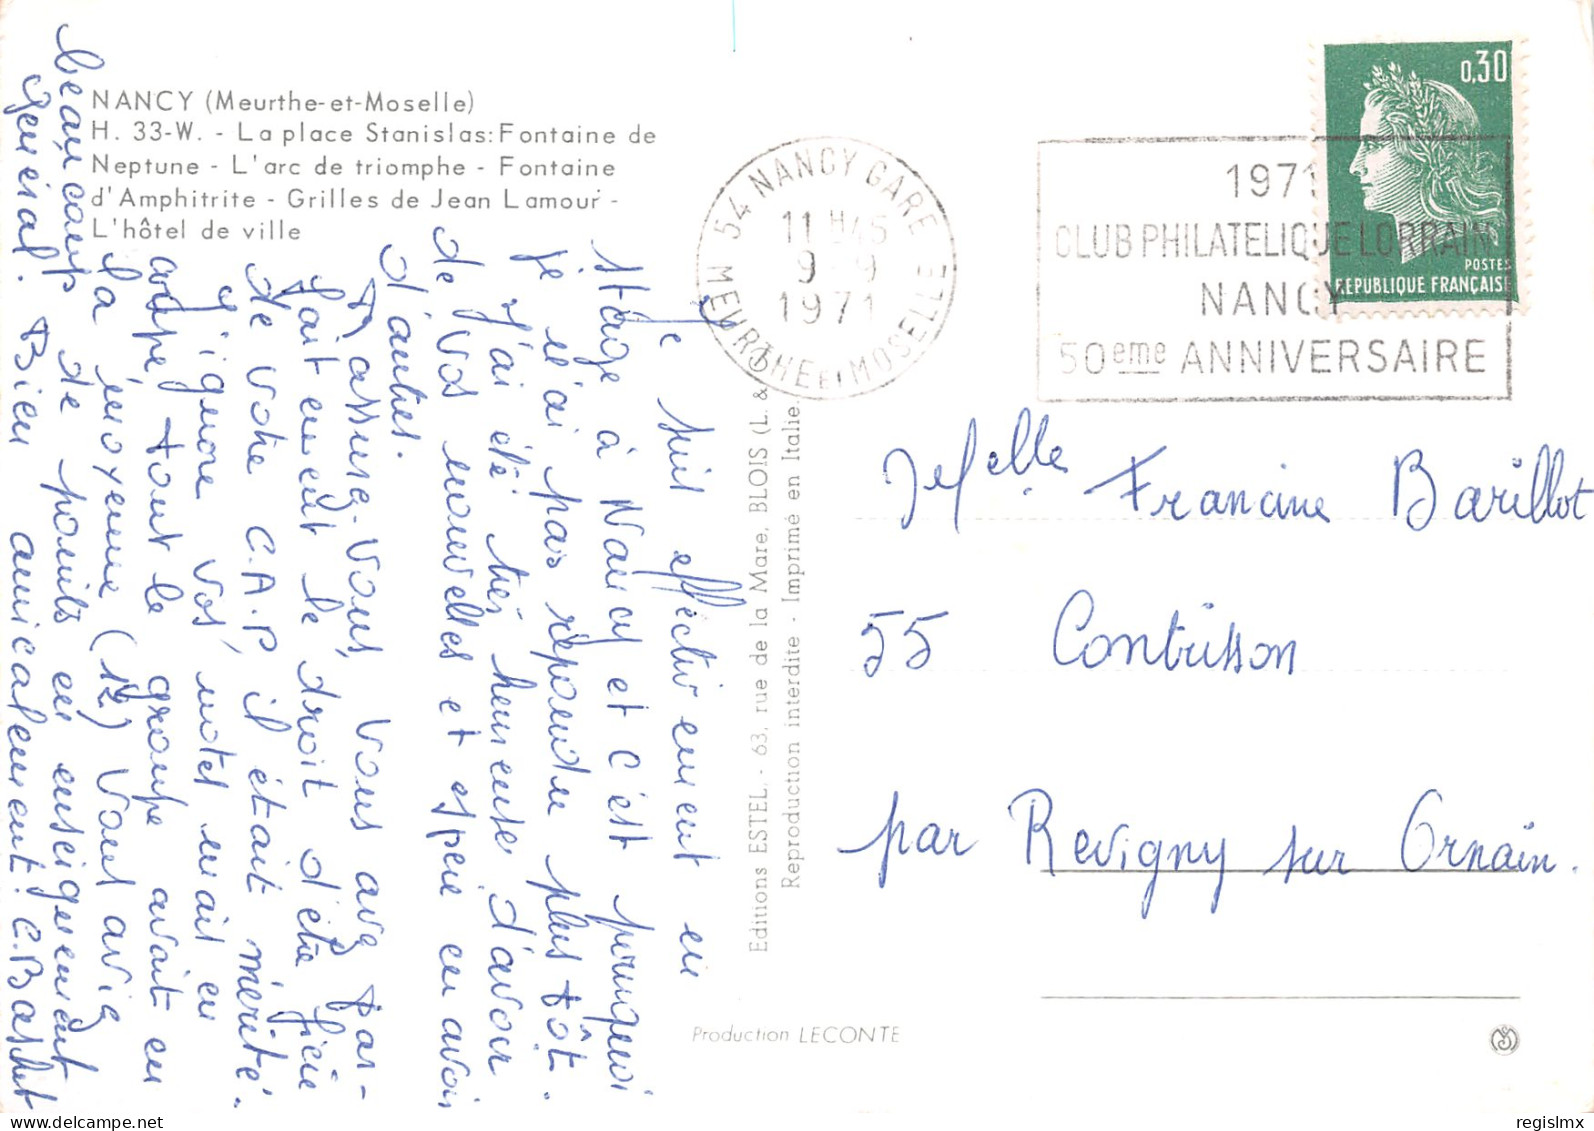 NANCY (Meurthe-et-Moselle)
H. 33-W. - La place Stanislas: Fontaine de
Neptune - L'arc de triomphe - Fontaine
d'Amphitrite - Grilles de Jean Lamour -
L'hôtel de ville
Je suis effectivement en
stage à Nancy et c'est pourquoi
je n'ai pas répondu plus tôt.
J'ai été très heureuse d'avoir
de vos nouvelles et espère en avoir
d'autres.
Rassurez-vous, vous avez par-
faitement le droit d'être fière
de votre C.A.P, il était mérité.
J'ignore vos notes mais en
groupe avait en
la moyenne (12) vous aviez
beaucoup de points en enseignement
général. Bien amicalement. C. Bachet
Editions ESTEL, - 63, rue de la Mare, BLOIS (L. &
Reproduction interdite - Imprimé en Italie
Production LECONTE
54 NANCY GARE
11 H45
9 - 9
1971
MEURTHE ET MOSELLE
1971
CLUB PHILATELIQUE LORRAIN
NANCY
50eme ANNIVERSAIRE
0,30
POSTES
REPUBLIQUE FRANÇAISE
Melle Francine Barillot
55 Contrisson
par Revigny sur Ornain.
delcampe.net
regislmx